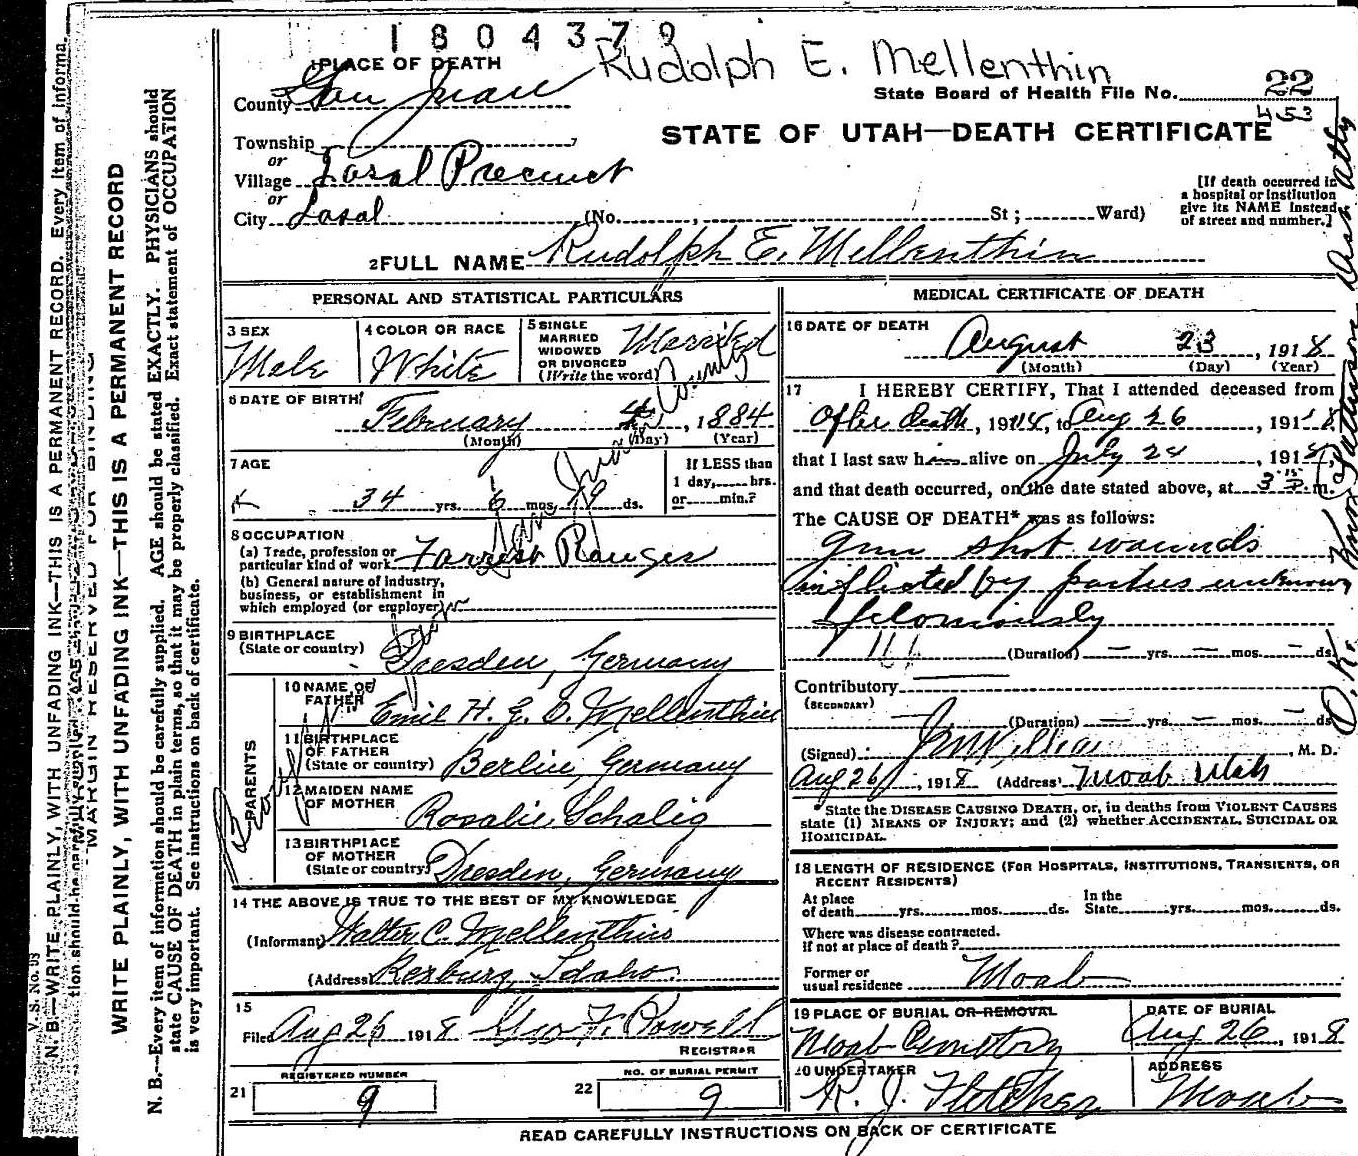 1804379
Rudolph E. Mellenthin
1 PLACE OF DEATH
County San Juan
State Board of Health File No. 22
453
Township
or
Village Lasal Precinct
or
City Lasal (No. , St; Ward)
STATE OF UTAH—DEATH CERTIFICATE
[If death occurred in
a hospital or institution
give its NAME instead
of street and number.]
2 FULL NAME Rudolph E. Mellenthin
PERSONAL AND STATISTICAL PARTICULARS
3 SEX
Male
4 COLOR OR RACE
White
5 SINGLE
MARRIED
WIDOWED
OR DIVORCED
(Write the word)
Married
6 DATE OF BIRTH
February 4, 1884
(Month) (Day) (Year)
7 AGE
34 yrs. 6 mos. 19 ds.
If LESS than
1 day, hrs.
or min.?
8 OCCUPATION
(a) Trade, profession or
particular kind of work Forrest Ranger
(b) General nature of industry,
business, or establishment in
which employed (or employer)
9 BIRTHPLACE
(State or country)
Dresden, Germany
PARENTS
10 NAME OF
FATHER
Emil H. G. E. Mellenthin
11 BIRTHPLACE
OF FATHER
(State or country) Berlin, Germany
12 MAIDEN NAME
OF MOTHER
Rosalie Schalig
13 BIRTHPLACE
OF MOTHER
(State or country) Dresden, Germany
14 THE ABOVE IS TRUE TO THE BEST OF MY KNOWLEDGE
(Informant) Walter C. Mellenthin
(Address) Rexburg, Idaho
15
Filed Aug 26 1918 Geo F. Powell
REGISTRAR
REGISTERED NUMBER
21 9
NO. OF BURIAL PERMIT
22 9
MEDICAL CERTIFICATE OF DEATH
16 DATE OF DEATH
August 23, 1918
(Month) (Day) (Year)
17 I HEREBY CERTIFY, That I attended deceased from
After death, 191 , to Aug 26, 1918
that I last saw him alive on July 24, 191
and that death occurred, on the date stated above, at 3 m.
The CAUSE OF DEATH* was as follows:
gun shot wounds
inflicted by parties unknown
feloniously
(Duration) — yrs. — mos. — ds.
Contributory
(SECONDARY)
(Duration) — yrs. — mos. — ds.
(Signed) , M. D.
Aug 26, 1918 (Address) Moab Utah
*State the DISEASE CAUSING DEATH, or, in deaths from VIOLENT CAUSES
state (1) MEANS OF INJURY; and (2) whether ACCIDENTAL, SUICIDAL OR
HOMICIDAL.
18 LENGTH OF RESIDENCE (FOR HOSPITALS, INSTITUTIONS, TRANSIENTS, OR
RECENT RESIDENTS)
At place
of death yrs. mos. ds.
In the
State yrs. mos. ds.
Where was disease contracted.
If not at place of death?
Former or
usual residence Moab
19 PLACE OF BURIAL OR REMOVAL
Moab Cemetery
DATE OF BURIAL
Aug 26, 1918
20 UNDERTAKER
R. J. Fletcher
ADDRESS
Moab
READ CAREFULLY INSTRUCTIONS ON BACK OF CERTIFICATE
V. S. No. 98
N. B.—WRITE PLAINLY, WITH UNFADING INK—THIS IS A PERMANENT RECORD. Every item of informa-
tion should be carefully
MARGIN RESERVED FOR BINDING
WRITE PLAINLY, WITH UNFADING INK—THIS IS A PERMANENT RECORD
N. B.—Every item of information should be carefully supplied. AGE should be stated EXACTLY. PHYSICIANS should
state CAUSE OF DEATH in plain terms, so that it may be properly classified. Exact statement of OCCUPATION
is very important. See instructions on back of certificate.
San Juan County
O.K. Knox Patterson Dist Atty